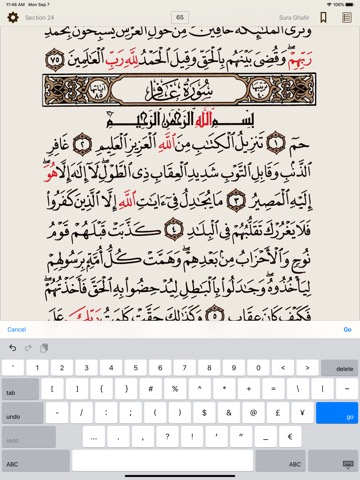 11:46 AM Mon Sep 7
100%
Section 24
65
Sura Ghafir
وَتَرَى ٱلْمَلَٰٓئِكَةَ حَآفِّينَ مِنْ حَوْلِ ٱلْعَرْشِ يُسَبِّحُونَ بِحَمْدِ
رَبِّهِمْ ۖ وَقُضِىَ بَيْنَهُم بِٱلْحَقِّ وَقِيلَ ٱلْحَمْدُ لِلَّهِ رَبِّ ٱلْعَٰلَمِينَ ٧٥
سُورَةُ غَافِرٍ
بِسْمِ ٱللَّهِ ٱلرَّحْمَٰنِ ٱلرَّحِيمِ
حمٓ ١ تَنزِيلُ ٱلْكِتَٰبِ مِنَ ٱللَّهِ ٱلْعَزِيزِ ٱلْعَلِيمِ ٢ غَافِرِ
ٱلذَّنۢبِ وَقَابِلِ ٱلتَّوْبِ شَدِيدِ ٱلْعِقَابِ ذِى ٱلطَّوْلِ ۖ لَآ إِلَٰهَ إِلَّا هُوَ ۖ
إِلَيْهِ ٱلْمَصِيرُ ٣ مَا يُجَٰدِلُ فِىٓ ءَايَٰتِ ٱللَّهِ إِلَّا ٱلَّذِينَ كَفَرُوا۟
فَلَا يَغْرُرْكَ تَقَلُّبُهُمْ فِى ٱلْبِلَٰدِ ٤ كَذَّبَتْ قَبْلَهُمْ قَوْمُ
نُوحٍ وَٱلْأَحْزَابُ مِنۢ بَعْدِهِمْ ۖ وَهَمَّتْ كُلُّ أُمَّةٍۭ بِرَسُولِهِمْ
لِيَأْخُذُوهُ ۖ وَجَٰدَلُوا۟ بِٱلْبَٰطِلِ لِيُدْحِضُوا۟ بِهِ ٱلْحَقَّ فَأَخَذْتُهُمْ ۖ
فَكَيْفَ كَانَ عِقَابِ ٥ وَكَذَٰلِكَ حَقَّتْ كَلِمَتُ رَبِّكَ عَلَى
Cancel Go
` 1 2 3 4 5 6 7 8 9 0 < > delete
tab [ ] { } # % ^ * + = \ | ~
undo - / : ; ( ) $ & @ £ ¥ go
redo … . , ? ! ' " _ €
ABC ABC